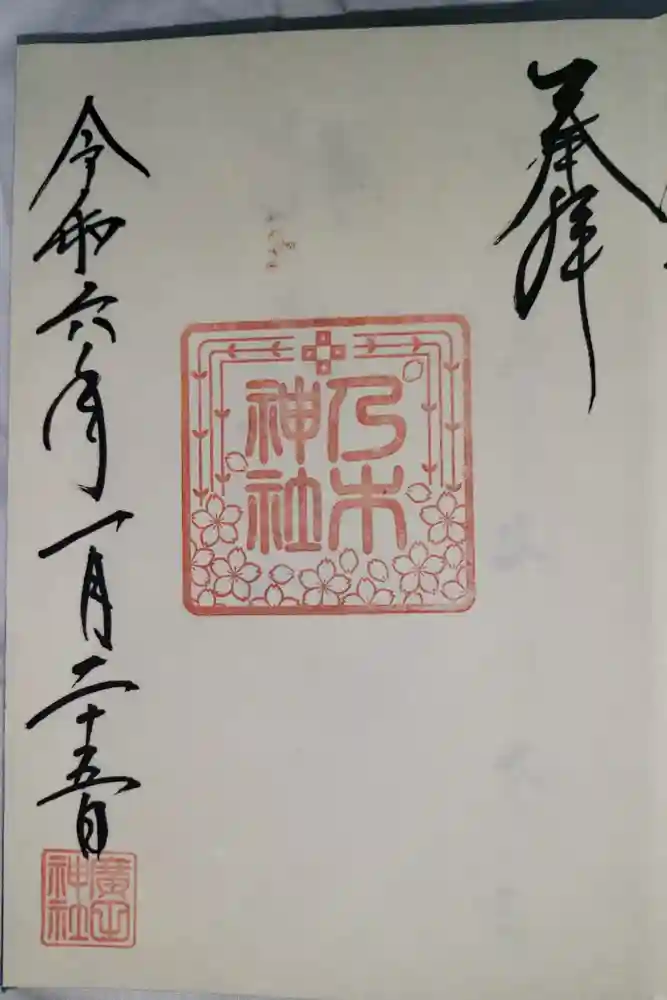 奉拝
乃木
神社
令和六年一月二十五日
廣田
神社